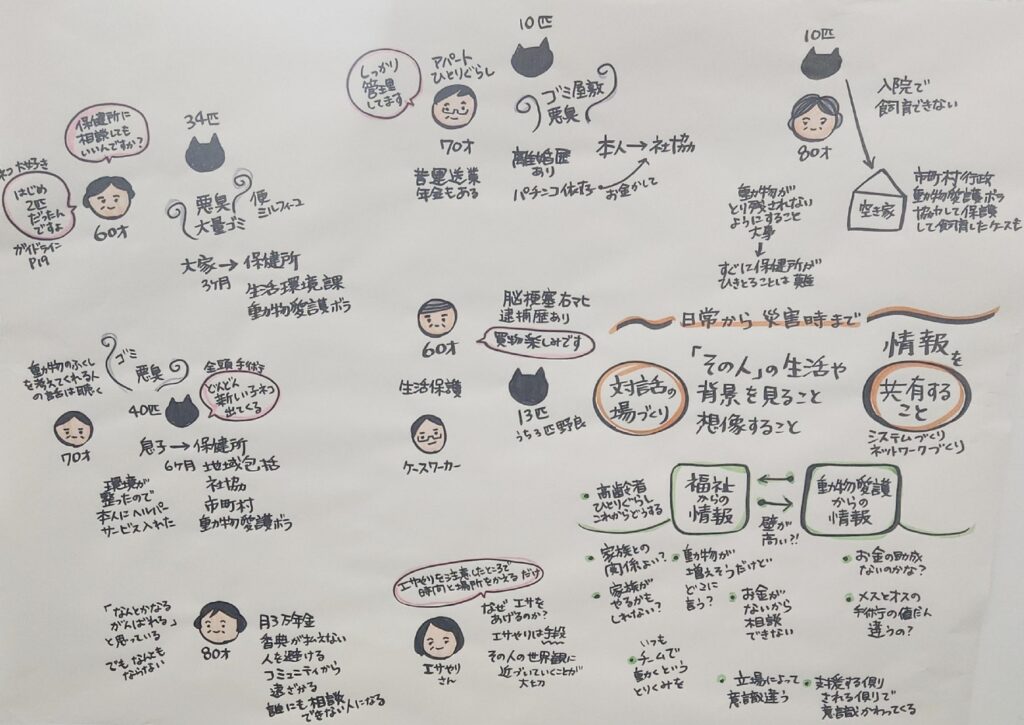 保健所に
相談しても
いいんですか?
ネコ大好き
はじめ
2匹
だったん
ですよ
60才
ガイドライン
P19
34匹
悪臭
大量ゴミ
便
ミルフィーユ
大家→保健所
3ヶ月
生活環境課
動物愛護ボラ
しっかり
管理
してます
アパート
ひとりぐらし
70才
昔運送業
年金もある
10匹
ゴミ屋敷
悪臭
離婚歴
あり
パチンコ依存
本人→社協
お金かして
10匹
80才
入院で
飼育できない
空き家
市町村行政
動物愛護ボラ
協力して保護
して飼育したケースも
動物が
とり残されない
ようにすること
大事
すぐに保健所が
ひきとることは難
動物のふくし
を考えてくれる人
の話は聴く
70才
ゴミ
悪臭
40匹
全頭手術予
どんどん
新しい子ネコ
出てくる
息子→保健所
6ヶ月
地域包括
社協
市町村
動物愛護ボラ
環境が
整ったので
本人にヘルパー
サービス入れた
60才
脳梗塞右マヒ
逮捕歴あり
買物楽しみです
生活保護
ケースワーカー
13匹
うち3匹野良
日常から災害時まで
対話の
場づくり
「その人」の生活や
背景を見ること
想像すること
情報を
共有する
こと
システムづくり
ネットワークづくり
高齢者
ひとりぐらし
これからどうする
福祉
からの
情報
壁が
高い?!
動物愛護
からの
情報
家族との
関係よい?
家族が
やるかも
しれない?
動物が
増えそうだけど
どこに
言う?
お金が
ないから
相談
できない
お金の助成
ないのかな?
メスとオスの
手術の値だん
違うの?
いつも
チームで
動くという
とりくみを
立場によって
意識違う
支援する側り
される側りで
意識かわってくる
「なんとかなる
がんばれる」
と思っている
でもなんとも
ならない
80才
月3万年金
香典が払えない
人を避ける
コミュニティから
遠ざかる
誰にも相談
できない人になる
エサやりを注意したところで
時間と場所をかえるだけ
エサやり
さん
なぜ エサを
あげるのか?
エサやりは手段
その人の世界観に
近づいていくことが
大切